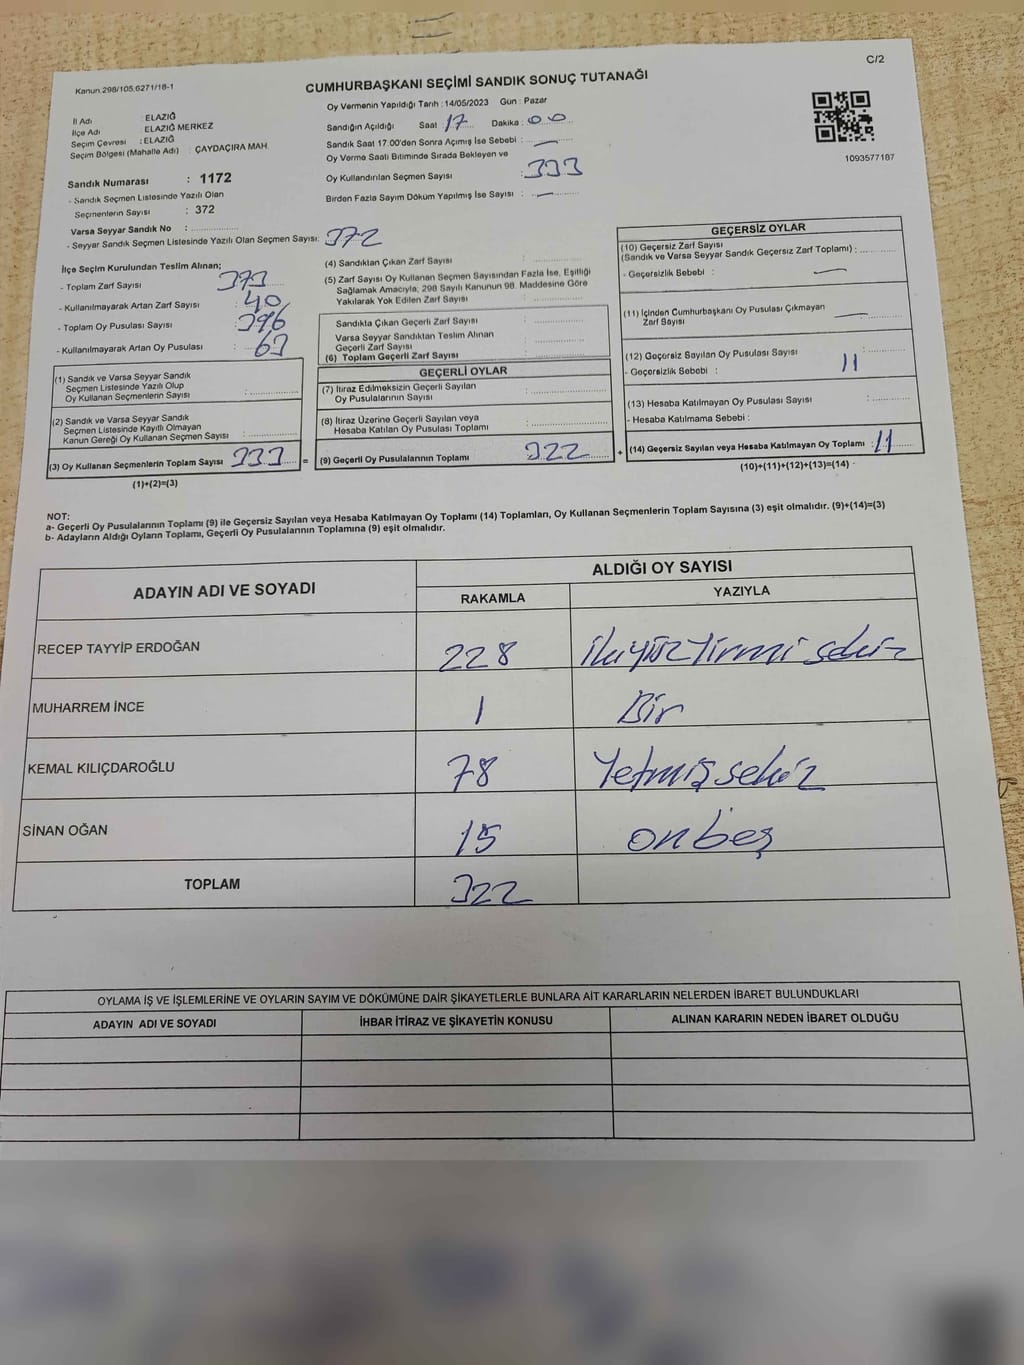 C/2
Kanun 298/105,6271/18-1
CUMHURBAŞKANI SEÇİMİ SANDIK SONUÇ TUTANAĞI
İl Adı : ELAZIĞ
İlçe Adı : ELAZIĞ MERKEZ
Seçim Çevresi : ELAZIĞ
Seçim Bölgesi (Mahalle Adı) : ÇAYDAÇIRA MAH.
Oy Vermenin Yapıldığı Tarih : 14/05/2023 Gün : Pazar
Sandığın Açıldığı Saat 17 Dakika : 00
Sandık Saat 17:00'den Sonra Açılmış İse Sebebi : —
Oy Verme Saati Bitiminde Sırada Bekleyen ve
Oy Kullandırılan Seçmen Sayısı : 333
Birden Fazla Sayım Döküm Yapılmış İse Sayısı : —
1093577187
Sandık Numarası : 1172
- Sandık Seçmen Listesinde Yazılı Olan
Seçmenlerin Sayısı : 372
Varsa Seyyar Sandık No :
- Seyyar Sandık Seçmen Listesinde Yazılı Olan Seçmen Sayısı: 372
İlçe Seçim Kurulundan Teslim Alınan;
- Toplam Zarf Sayısı : 373
- Kullanılmayarak Artan Zarf Sayısı : 40
- Toplam Oy Pusulası Sayısı : 396
- Kullanılmayarak Artan Oy Pusulası : 63
(1) Sandık ve Varsa Seyyar Sandık
Seçmen Listesinde Yazılı Olup
Oy Kullanan Seçmenlerin Sayısı :
(2) Sandık ve Varsa Seyyar Sandık
Seçmen Listesinde Kayıtlı Olmayan
Kanun Gereği Oy Kullanan Seçmen Sayısı :
(3) Oy Kullanan Seçmenlerin Toplam Sayısı 333 =
(1)+(2)=(3)
(4) Sandıktan Çıkan Zarf Sayısı :
(5) Zarf Sayısı Oy Kullanan Seçmen Sayısından Fazla İse, Eşitliği
Sağlamak Amacıyla, 298 Sayılı Kanunun 98. Maddesine Göre
Yakılarak Yok Edilen Zarf Sayısı :
Sandıkta Çıkan Geçerli Zarf Sayısı :
Varsa Seyyar Sandıktan Teslim Alınan
Geçerli Zarf Sayısı :
(6) Toplam Geçerli Zarf Sayısı :
GEÇERLİ OYLAR
(7) İtiraz Edilmeksizin Geçerli Sayılan
Oy Pusulasının Sayısı :
(8) İtiraz Üzerine Geçerli Sayılan veya
Hesaba Katılan Oy Pusulası Toplamı :
(9) Geçerli Oy Pusulalarının Toplamı 322 +
GEÇERSİZ OYLAR
(10) Geçersiz Zarf Sayısı
(Sandık ve Varsa Seyyar Sandık Geçersiz Zarf Toplamı) :
- Geçersizlik Sebebi : —
(11) İçinden Cumhurbaşkanı Oy Pusulası Çıkmayan
Zarf Sayısı : —
(12) Geçersiz Sayılan Oy Pusulası Sayısı :
- Geçersizlik Sebebi : 11
(13) Hesaba Katılmayan Oy Pusulası Sayısı :
- Hesaba Katılmama Sebebi :
(14) Geçersiz Sayılan veya Hesaba Katılmayan Oy Toplamı : 11
(10)+(11)+(12)+(13)=(14)
NOT:
a- Geçerli Oy Pusulalarının Toplamı (9) ile Geçersiz Sayılan veya Hesaba Katılmayan Oy Toplamı (14) Toplamları, Oy Kullanan Seçmenlerin Toplam Sayısına (3) eşit olmalıdır. (9)+(14)=(3)
b- Adayların Aldığı Oyların Toplamı, Geçerli Oy Pusulalarının Toplamına (9) eşit olmalıdır.
ADAYIN ADI VE SOYADI
ALDIĞI OY SAYISI
RAKAMLA YAZIYLA
RECEP TAYYİP ERDOĞAN 228 ikiyüzyirmi sekiz
MUHARREM İNCE 1 Bir
KEMAL KILIÇDAROĞLU 78 Yetmiş sekiz
SİNAN OĞAN 15 onbeş
TOPLAM 322
OYLAMA İŞ VE İŞLEMLERİNE VE OYLARIN SAYIM VE DÖKÜMÜNE DAİR ŞİKAYETLERLE BUNLARA AİT KARARLARIN NELERDEN İBARET BULUNDUKLARI
ADAYIN ADI VE SOYADI İHBAR İTİRAZ VE ŞİKAYETİN KONUSU ALINAN KARARIN NEDEN İBARET OLDUĞU